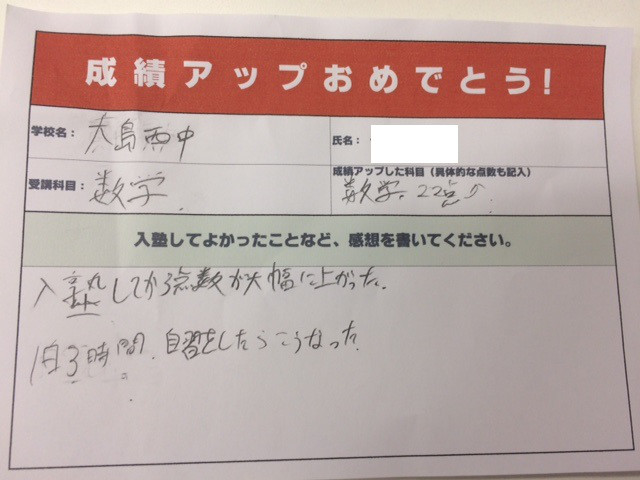 成績アップおめでとう!
学校名： 大島西中
氏名：
受講科目： 数学
成績アップした科目（具体的な点数も記入）
数学. 22点
入塾してよかったことなど、感想を書いてください。
入塾してから点数が大幅に上がった.
1日3時間. 自習をしたらこうなった